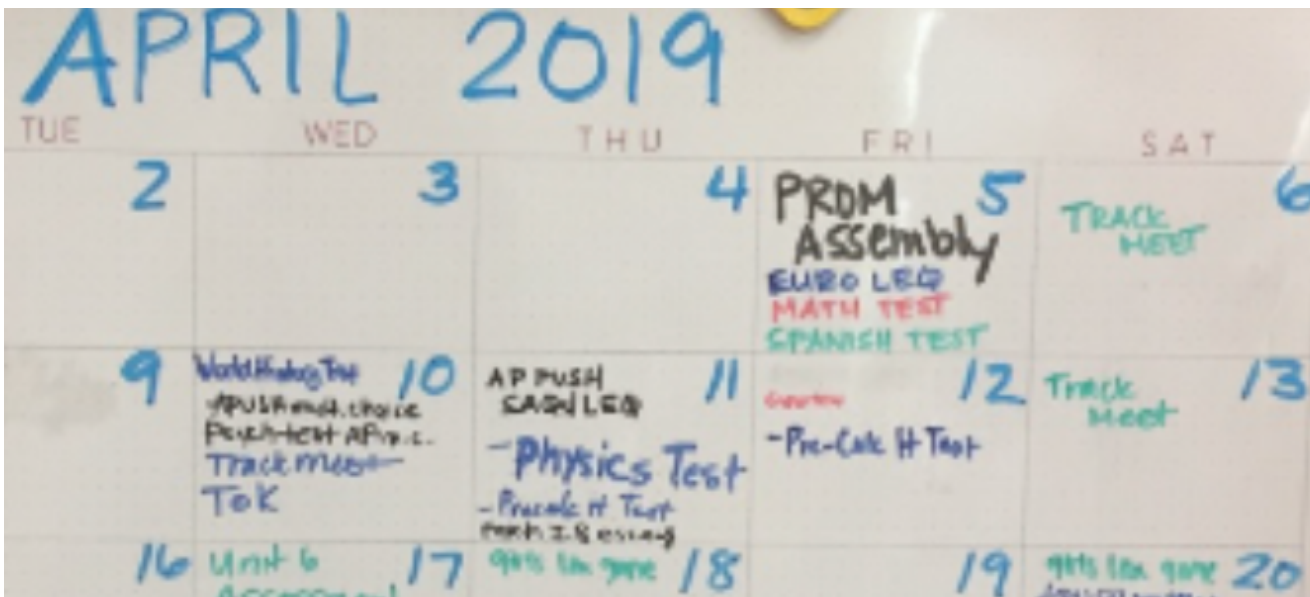 APRIL 2019
TUE WED THU FRI SAT
2 3 4 5 6
PROM
Assembly
EURO LEQ
MATH TEST
SPANISH TEST
TRACK
MEET
9 10 11 12 13
World History Test
APUSH mult. choice
Psych test AP m.c.
Track meet
TOK
AP PUSH
LEQ
- Physics Test
- Precalc H Test
essay
- Pre-Calc H Test
Track
Meet
16 17 18 19 20
Unit 6
Assessment
girls lax game
girls lax game